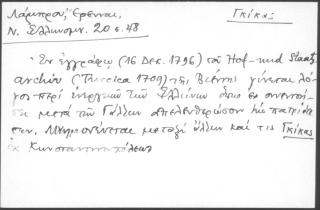 Λάμπρου, Έρευναι,
Γκίκας
Ν. Ελληνομν. 20 σ. 48
Εν εγγράφω (16 Δεκ. 1796) του Hof- und Staats
archiv (Turcica 1709) της Βιέννης γίνεται λό-
γος περί ενεργειών των Ελλήνων όπως εν συνεννοή-
σει μετά των Γάλλων απελευθερώσουν την πατρίδα
των. Μνημονεύεται μεταξύ άλλων και τις Γκίκας
εκ Κωνσταντινουπόλεως